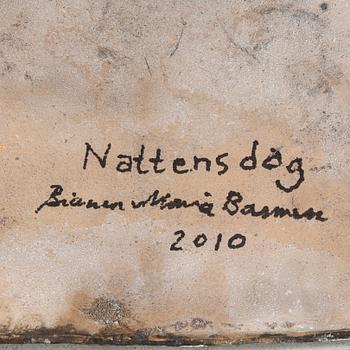 Nattens dag
Bianca Maria Barmen
2010